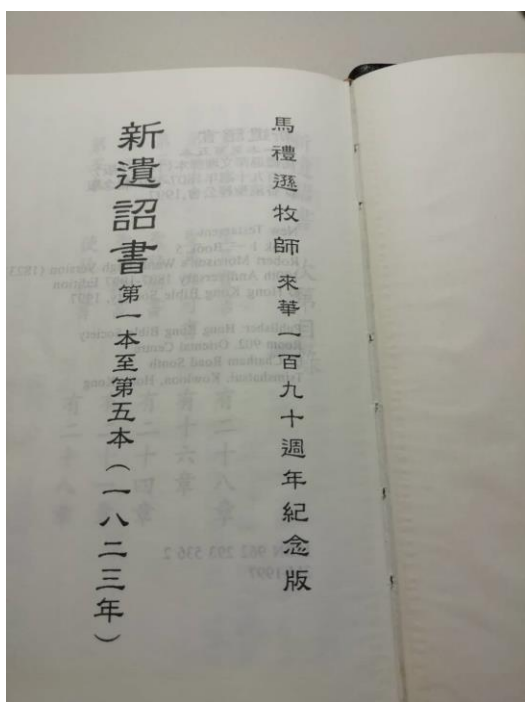 馬禮遜牧師來華一百九十週年紀念版
新遺詔書第一本至第五本(一八二三年)